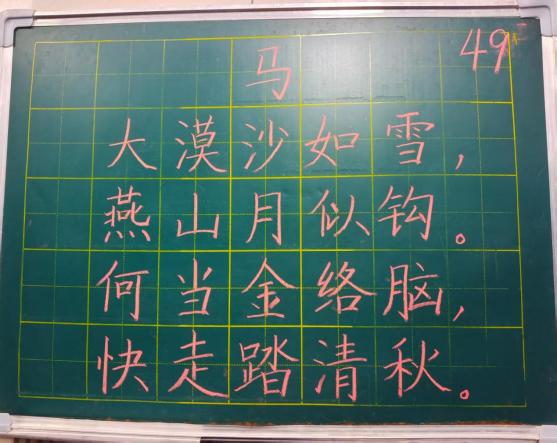 49
马
大漠沙如雪，
燕山月似钩。
何当金络脑，
快走踏清秋。